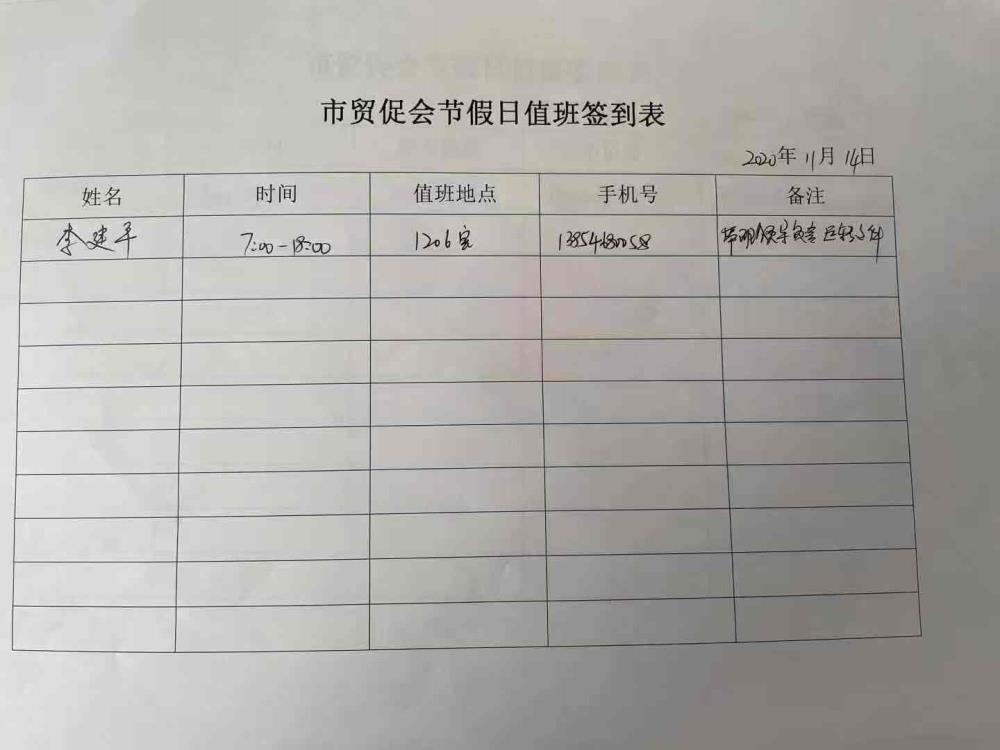 市贸促会节假日值班签到表
2020年11月14日
姓名 时间 值班地点 手机号 备注
李建平 7:00-18:00 1206室 13854680058